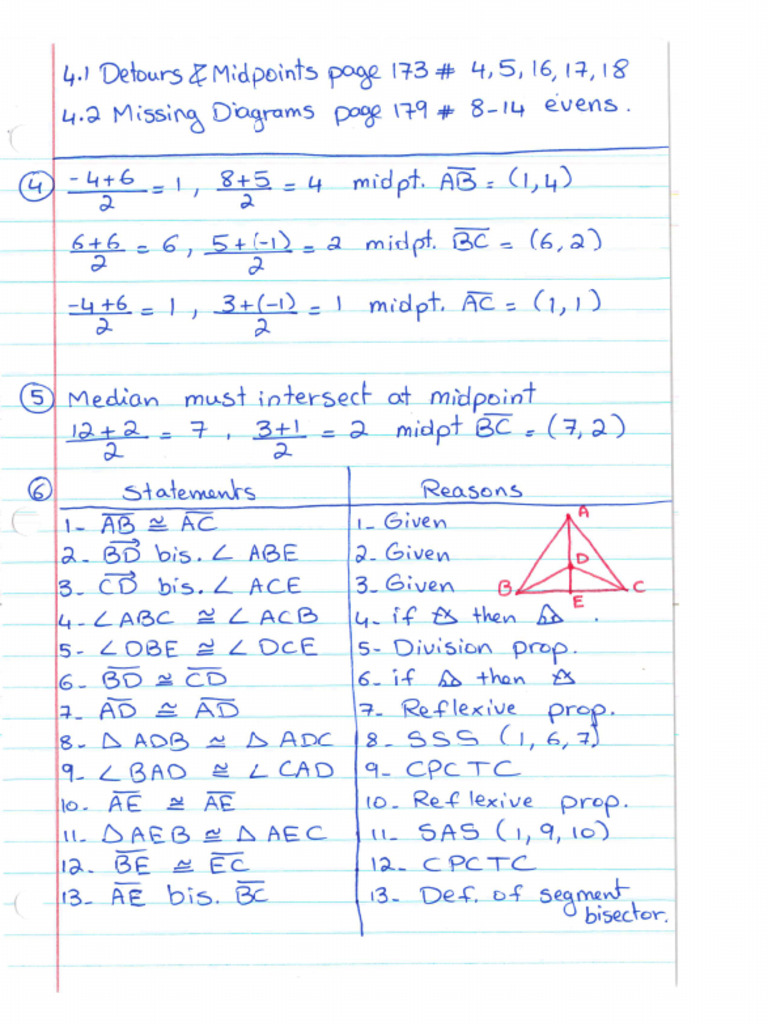 4.1 Detours & Midpoints page 173 # 4, 5, 16, 17, 18
4.2 Missing Diagrams page 179 # 8-14 evens.
④ -4+6/2 = 1, 8+5/2 = 4 midpt. AB = (1,4)
6+6/2 = 6, 5+(-1)/2 = 2 midpt. BC = (6,2)
-4+6/2 = 1, 3+(-1)/2 = 1 midpt. AC = (1,1)
⑤ Median must intersect at midpoint
12+2/2 = 7, 3+1/2 = 2 midpt BC = (7,2)
⑥ Statements Reasons
1- AB ≅ AC 1- Given
2. BD bis. ∠ ABE 2. Given
3. CD bis. ∠ ACE 3- Given
4- ∠ABC ≅ ∠ACB 4- if then .
5- ∠DBE ≅ ∠DCE 5- Division prop.
6- BD ≅ CD 6- if then
7. AD ≅ AD 7. Reflexive prop.
8- △ ADB ≅ △ ADC 8- SSS (1, 6, 7)
9- ∠BAD ≅ ∠CAD 9- CPCTC
10. AE ≅ AE 10- Reflexive prop.
11. △AEB ≅ △AEC 11- SAS (1, 9, 10)
12. BE ≅ EC 12- CPCTC
13- AE bis. BC 13- Def. of segment
bisector.
A
D
B C
E